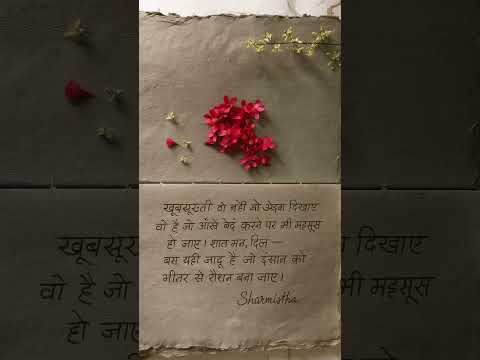 खूबसूरती वो नहीं जो आइना दिखाए
वो है जो आँखे बंद करने पर भी महसूस
हो जाए। शांत मन, दिल —
बस यही जादू है जो इंसान को
भीतर से रोशन बना जाए।
Sharmistha